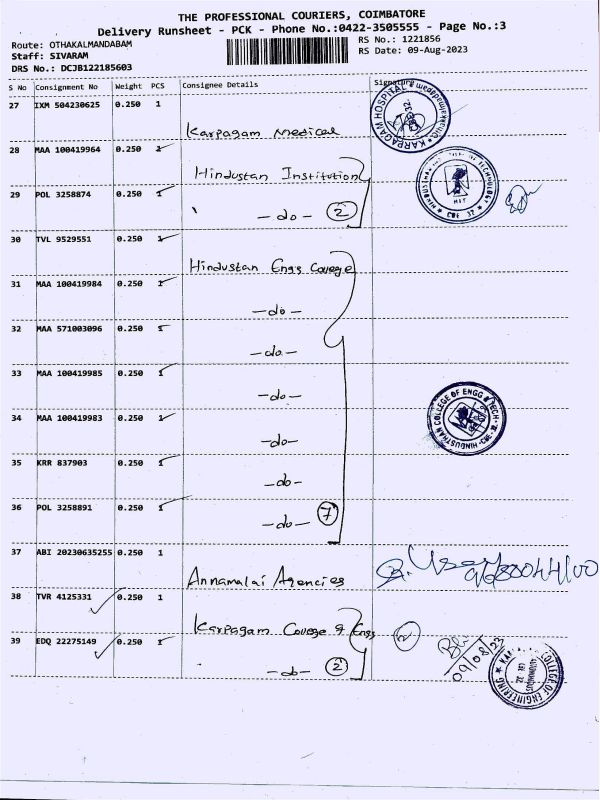 THE PROFESSIONAL COURIERS, COIMBATORE
Delivery Runsheet - PCK - Phone No.:0422-3505555 - Page No.:3
Route: OTHAKALMANDABAM
RS No.: 1221856
Staff: SIVARAM
RS Date: 09-Aug-2023
DRS No.: DCJB122185603
S No Consignment No Weight PCS Consignee Details Signature
27 IXM 504230625 0.250 1
Karpagam Medical
KARPAGAM HOSPITAL
28 MAA 100419964 0.250 1
Hindustan Institution
29 POL 3258874 0.250 1
-do- 2
HIT
CBE 32
30 TVL 9529551 0.250 1
Hindustan Engg College
31 MAA 100419984 0.250 1
-do-
32 MAA 571003096 0.250 1
-do-
33 MAA 100419985 0.250 1
-do-
34 MAA 100419983 0.250 1
-do-
HINDUSTHAN COLLEGE OF ENGG & TECH
35 KRR 837903 0.250 1
-do-
36 POL 3258891 0.250 1
-do- 7
37 ABI 20230635255 0.250 1
Annamalai Agencies
38 TVR 4125331 0.250 1
Karpagam College of Engg 2
39 EDQ 22275149 0.250 1
-do- 2
09/08/23
COLLEGE OF ENGINEERING